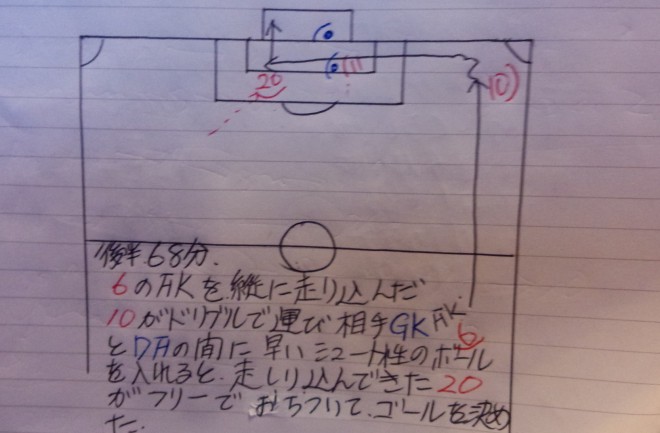 20
11
10
後半68分.
6のFKを縦に走り込んだ
10がドリブルで運び相手GK
FK
6
とDFの間に早いシュート性のボール
を入れると、走り込んできた20
がフリーでおちついて、ゴールを決め
た.